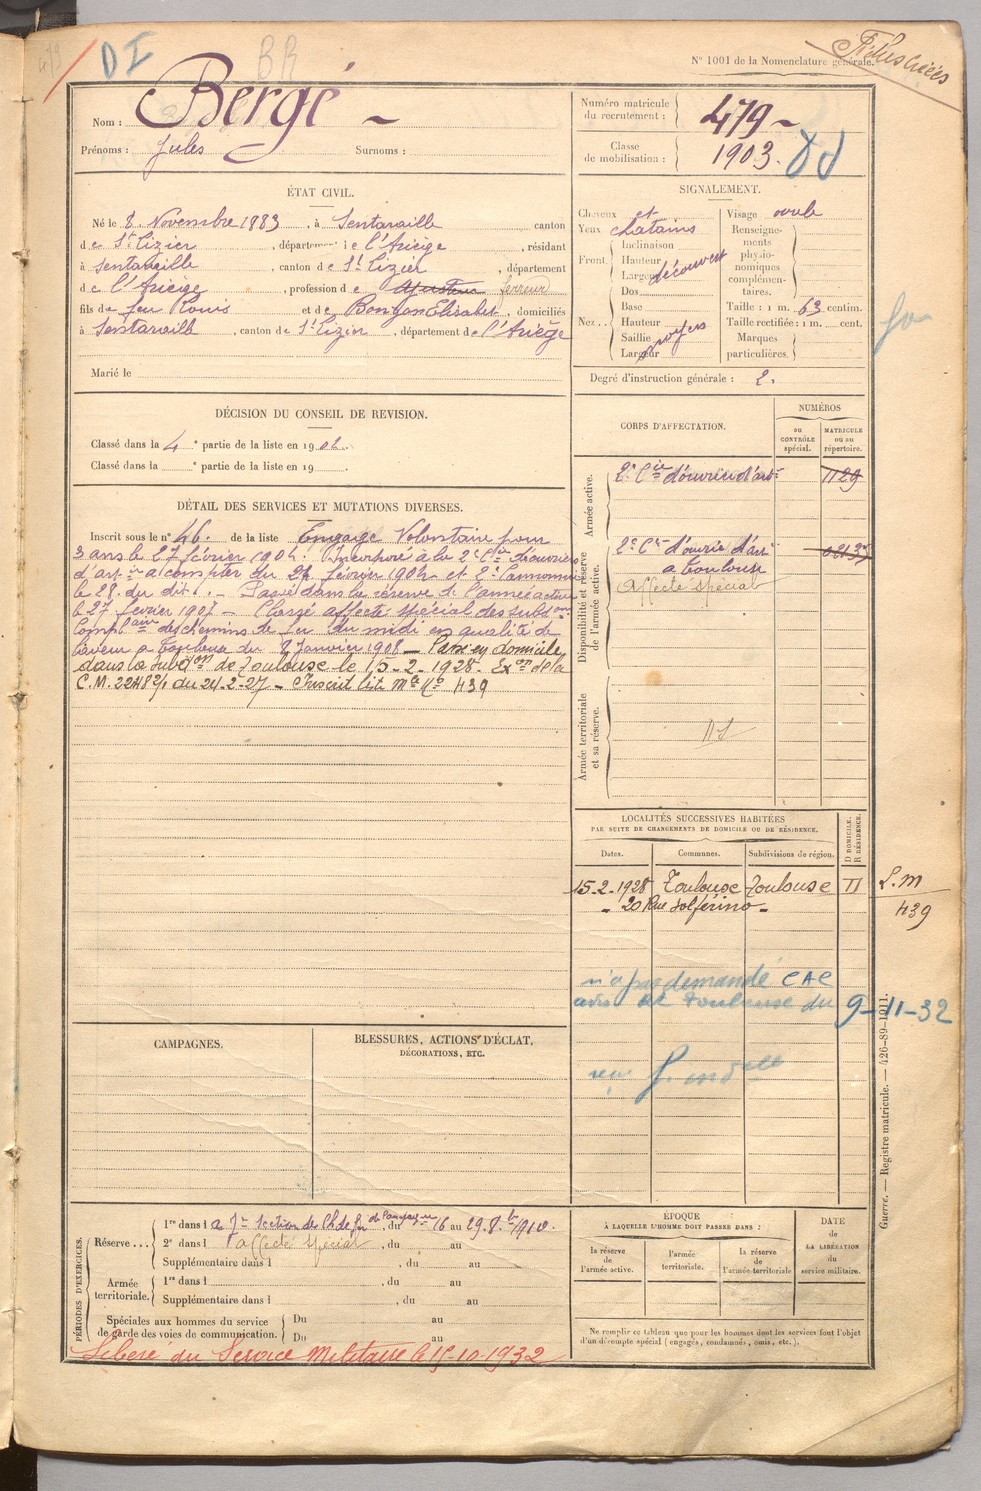 479 DI BR
N° 1001 de la Nomenclature générale.
Nom : Bergé
Prénoms : Jules Surnoms :
Numéro matricule du recrutement : 479
Classe de mobilisation : 1903.
ÉTAT CIVIL.
Né le 8 Novembre 1883, à Sentaraille canton
de St Lizier, département de l'Ariège, résidant
à Sentaraille, canton de St Lizier, département
de l'Ariège, profession de ferreur
fils de feu Louis et de Elisabet, domiciliés
à Sentaraille, canton de St Lizier, département de l'Ariège
Marié le
SIGNALEMENT.
Cheveux et
Yeux chatains
Front. Inclinaison
Hauteur
Largeur découvert
Nez... Dos
Base
Hauteur
Saillie moyens
Largeur
Visage ovale
Renseignements physionomiques complémentaires.
Taille : 1 m. 63 centim.
Taille rectifiée : 1 m. cent.
Marques particulières.
Degré d'instruction générale : 2.
DÉCISION DU CONSEIL DE REVISION.
Classé dans la 4e partie de la liste en 1904.
Classé dans la e partie de la liste en 19
DÉTAIL DES SERVICES ET MUTATIONS DIVERSES.
Inscrit sous le n° 46. de la liste Engagé Volontaire pour
3 ans le 27 février 1904. Incorporé à la 2e Cie d'ouvriers
d'art ie a compter du 27 février 1904 et 2e Cannonnier
le 28 du dit. Passé dans la réserve de l'armée active
le 27 fevrier 1907 — Classé affecté spécial des subd ons
Compl aire des chemins de fer du midi en qualité de
a Toulouse du 8 Janvier 1908 — Passé en domicile
dans la subd on de Toulouse le 15-2-1928. Ex on de la
C.M. 2248 2/1 du 24-2-27 — Inscrit liste Mle No 439
CORPS D'AFFECTATION.
NUMÉROS
au CONTRÔLE spécial.
MATRICULE ou au répertoire.
Armée active.
2e Cie d'ouvriers d'art ie 1129
Disponibilité et réserve de l'armée active.
2e Cie d'ouvriers d'art
a Toulouse
Affecté spécial
Armée territoriale et sa réserve.
LOCALITÉS SUCCESSIVES HABITÉES
PAR SUITE DE CHANGEMENTS DE DOMICILE OU DE RÉSIDENCE.
Dates. Communes. Subdivisions de région. D DOMICILE. R RÉSIDENCE.
15-2-1928 Toulouse Toulouse D
20 Rue Solférino
L.M
439
n'a pas demandé CAC
avis de Toulouse du 9-11-32
CAMPAGNES.
BLESSURES, ACTIONS D'ÉCLAT, DÉCORATIONS, ETC.
PÉRIODES D'EXERCICES.
Réserve... 1re dans l a 7e Section de Ch de fer de Campagne, du 16 au 29.8.bre 1910.
2e dans l affecté spécial, du au
Supplémentaire dans l, du au
Armée territoriale. 1re dans l, du au
Supplémentaire dans l, du au
Spéciales aux hommes du service de garde des voies de communication. Du au
Du au
Libéré du Service Militaire le 15-10-1932
EPOQUE
À LAQUELLE L'HOMME DOIT PASSER DANS :
la réserve de l'armée active.
l'armée territoriale.
la réserve de l'armée territoriale
DATE DE LA LIBÉRATION du service militaire.
Ne remplir ce tableau que pour les hommes dont les services font l'objet
d'un décompte spécial (engagés, condamnés, omis, etc.).
Guerre. — Registre matricule. — 426-89-1911.